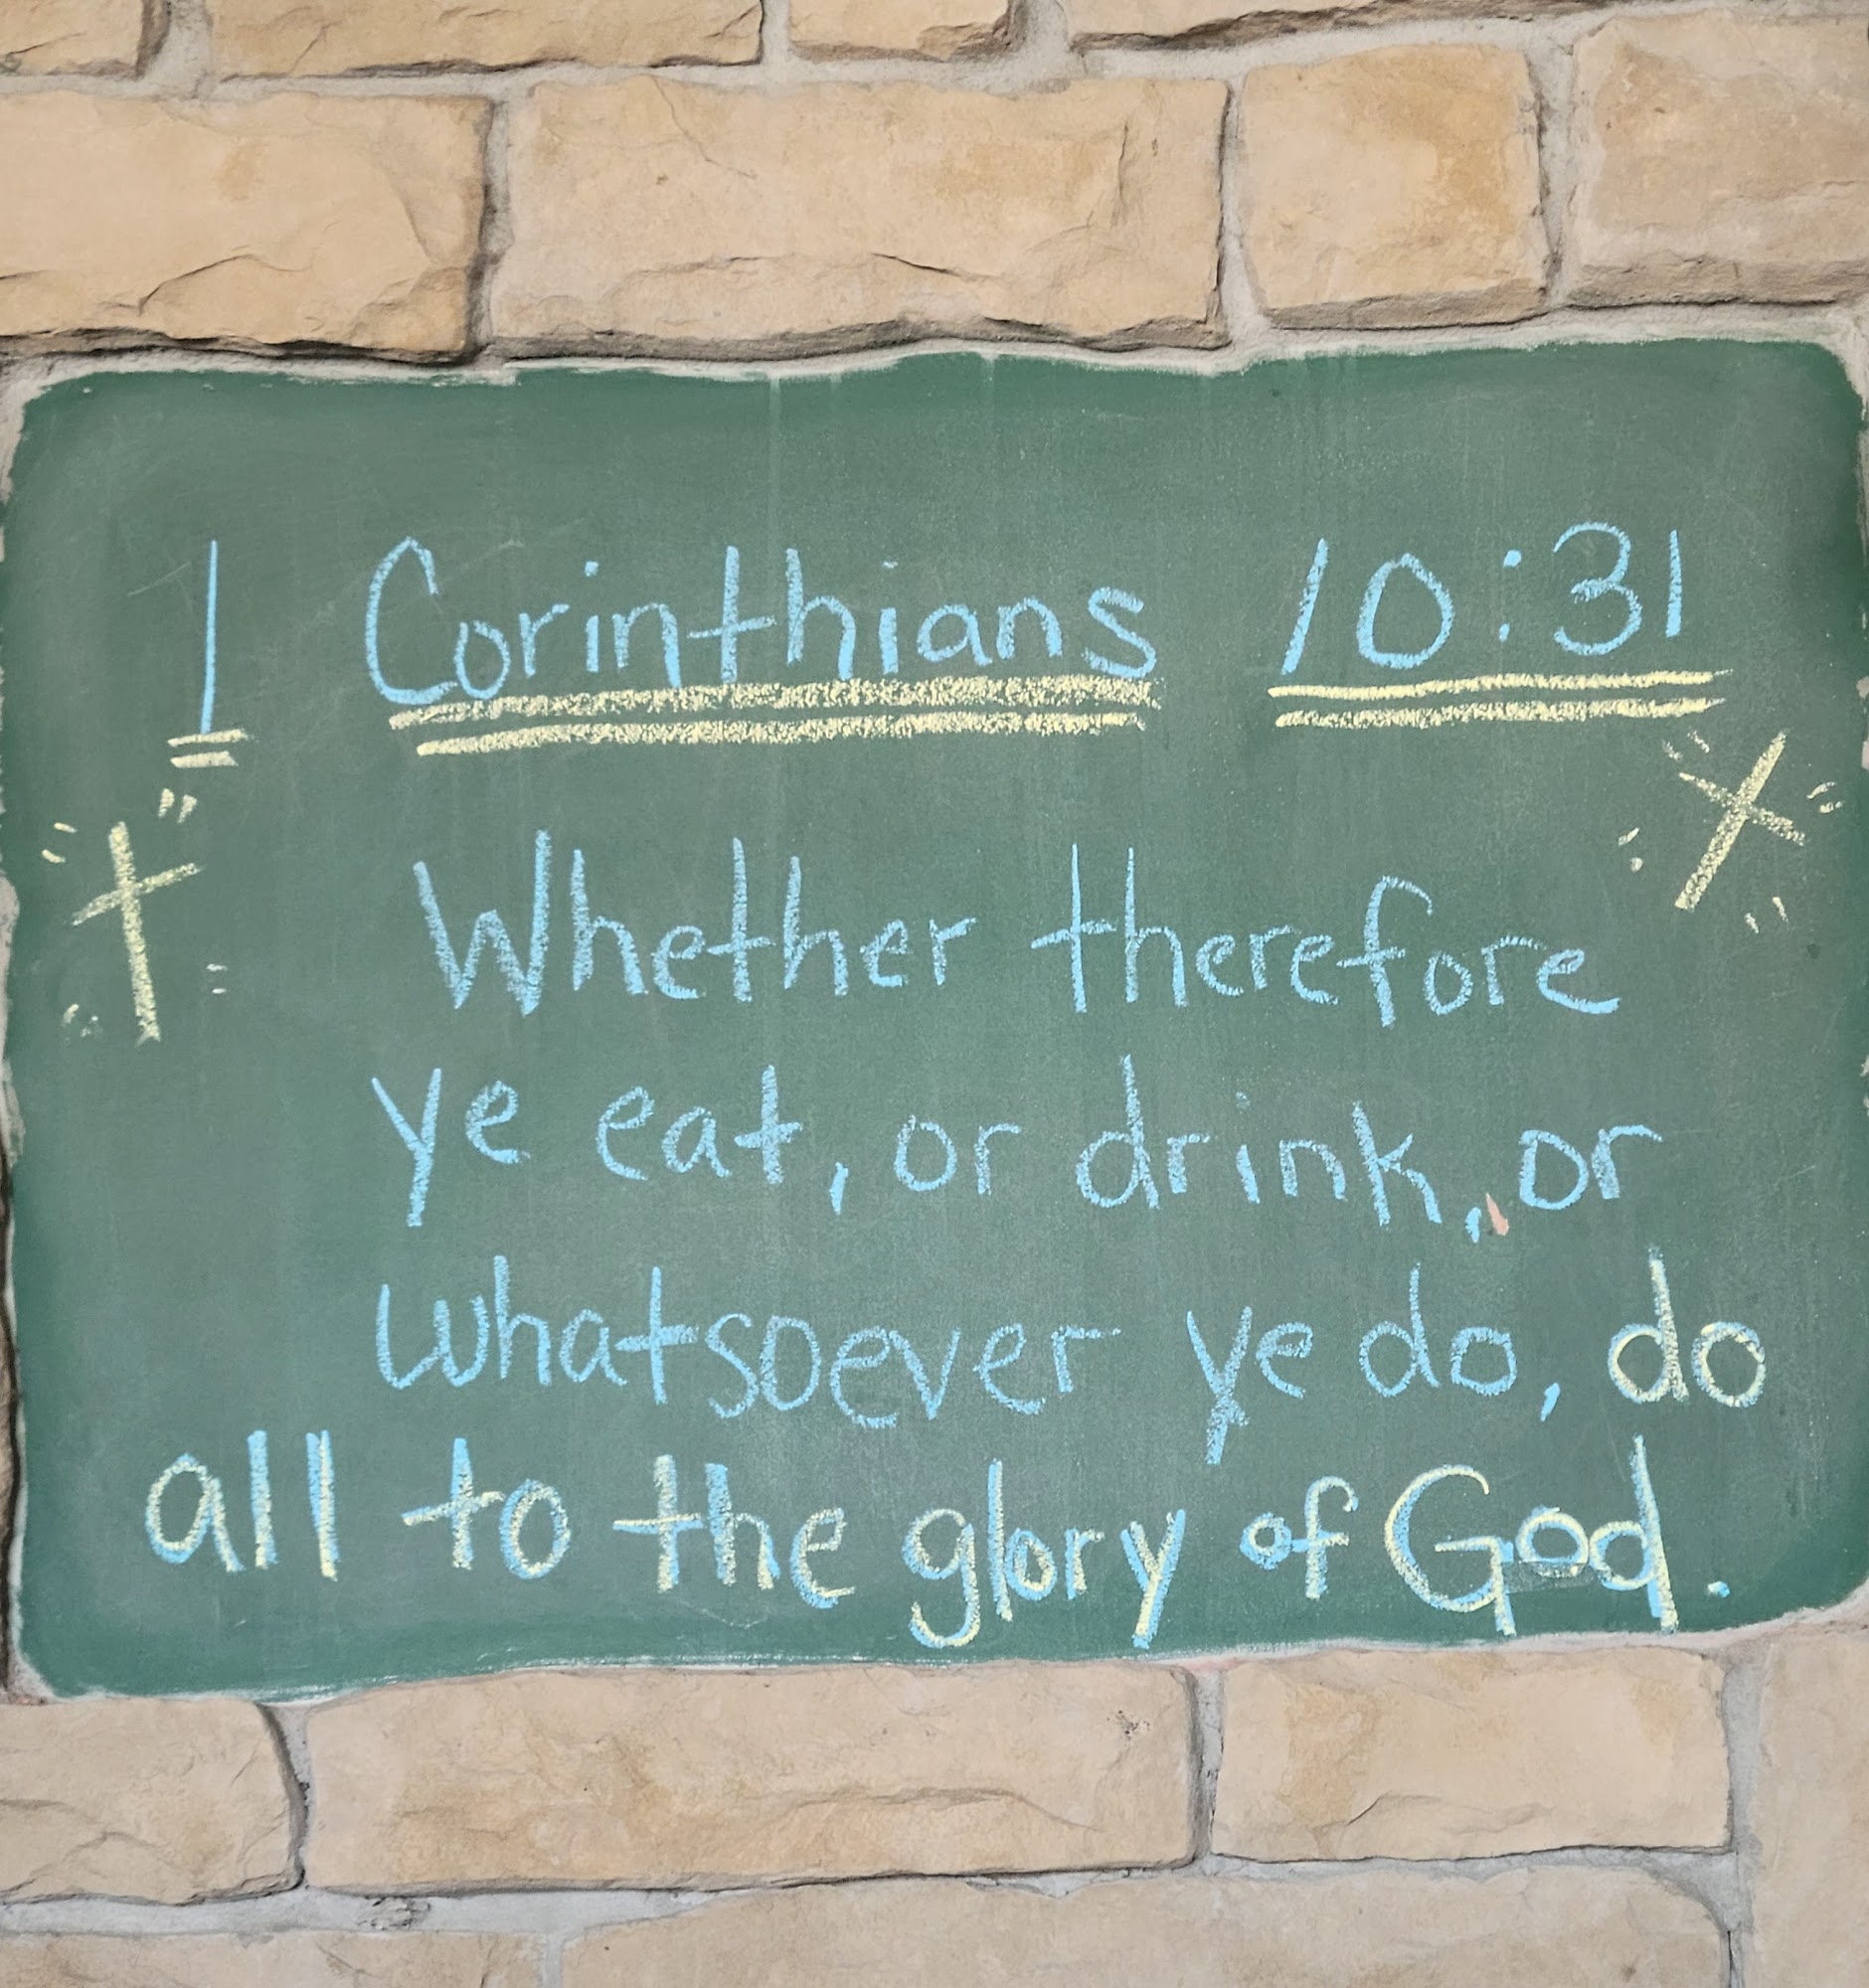 1 Corinthians 10:31
Whether therefore
ye eat, or drink, or
whatsoever ye do, do
all to the glory of God.